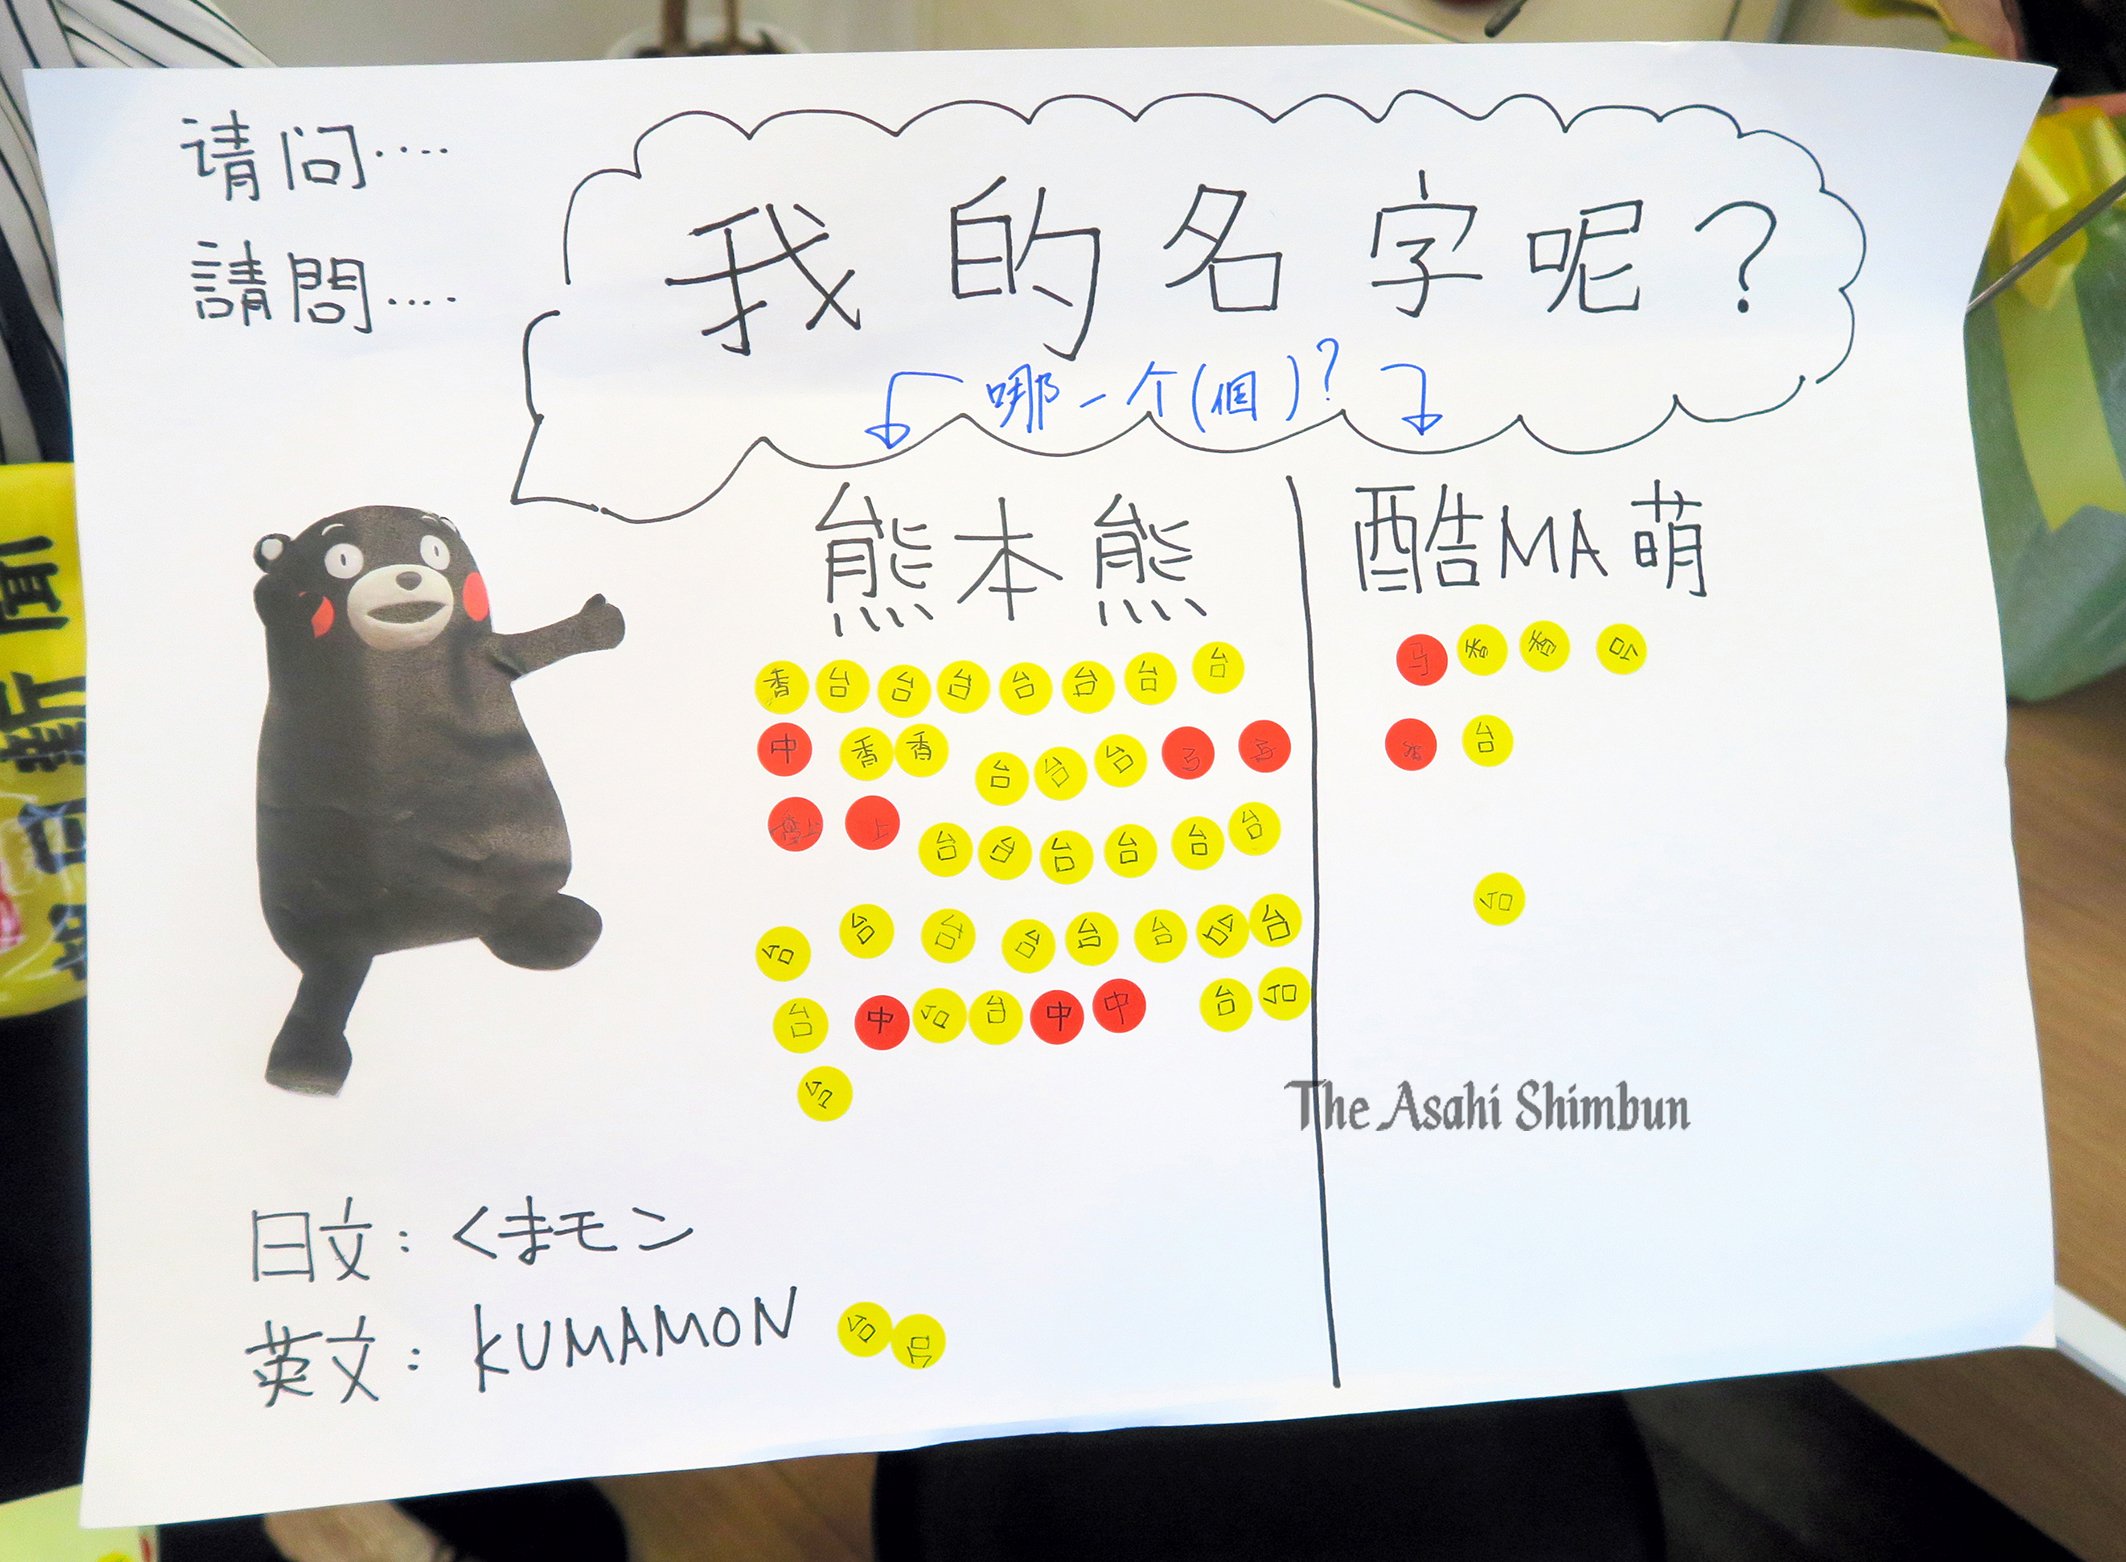 请问....
請問....
我的名字呢?
哪一个(個)?
熊本熊
酷MA萌
香 台 台 台 台 台 台 台
中 香 香 台 台 台
上
台 台 台 台 台 台
台 台 台 台 台 台 台 台
台 中 台 台 中 中 台 台
台
马 香 香 台
台
台
The Asahi Shimbun
日文: くまモン
英文: KUMAMON 台 台